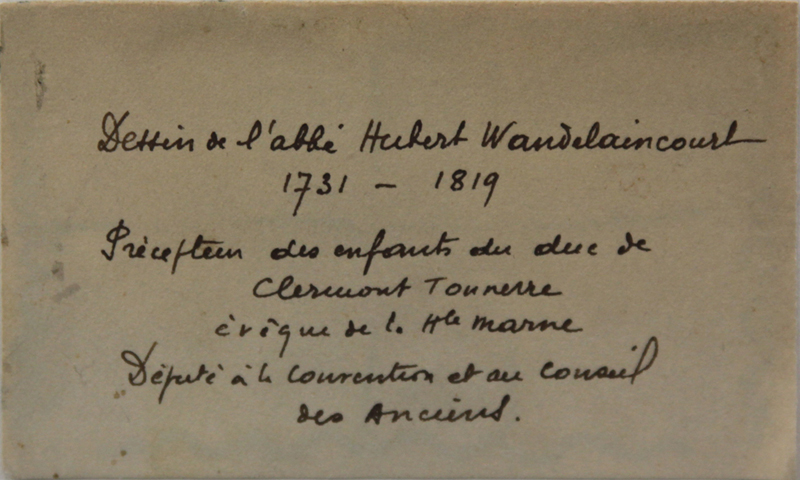 Dessin de l'abbé Hubert Wandelaincourt
1731 - 1819
Précepteur des enfants du duc de
Clermont Tonnerre
évêque de la Hte Marne
Député à la Convention et au Conseil
des Anciens.